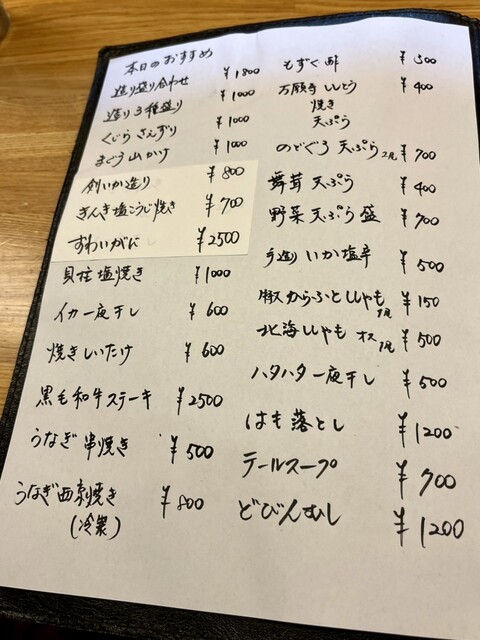 本日のおすすめ
造り盛り合わせ ¥1800
造り3種盛り ¥1000
くじら さえずり ¥1000
まぐろ山かけ ¥1000
剣いか造り ¥800
きんき塩こうじ焼き ¥700
ずわいがに ¥2500
貝柱塩焼き ¥1000
イカ一夜干し ¥600
焼きしいたけ ¥600
黒毛和牛ステーキ ¥2500
うなぎ串焼き ¥500
うなぎ西京焼き ¥800
(冷製)
もずく酢 ¥300
万願寺ししとう ¥400
焼き
天ぷら
のどぐろ天ぷら2尾 ¥700
舞茸天ぷら ¥400
野菜天ぷら盛 ¥700
手造りいか塩辛 ¥500
からふとししゃも ¥150
北海ししゃも オス ¥500
ハタハタ一夜干し ¥500
はも落とし ¥1200
テールスープ ¥700
どびんむし ¥1200